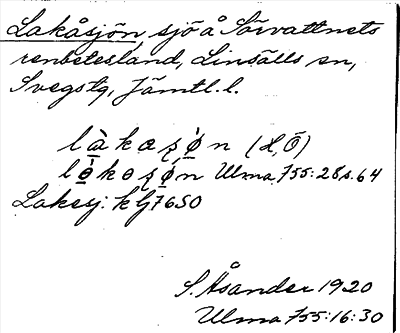 Lakåsjön, sjö å Sörvattnets
renbetesland, Linsälls sn,
Svegstg, Jämtl. l.
(H, Ö)
Ulma 755:28 s. 64
Lakesj: kG7650
S. Åsander 1920
Ulma 755:16:30